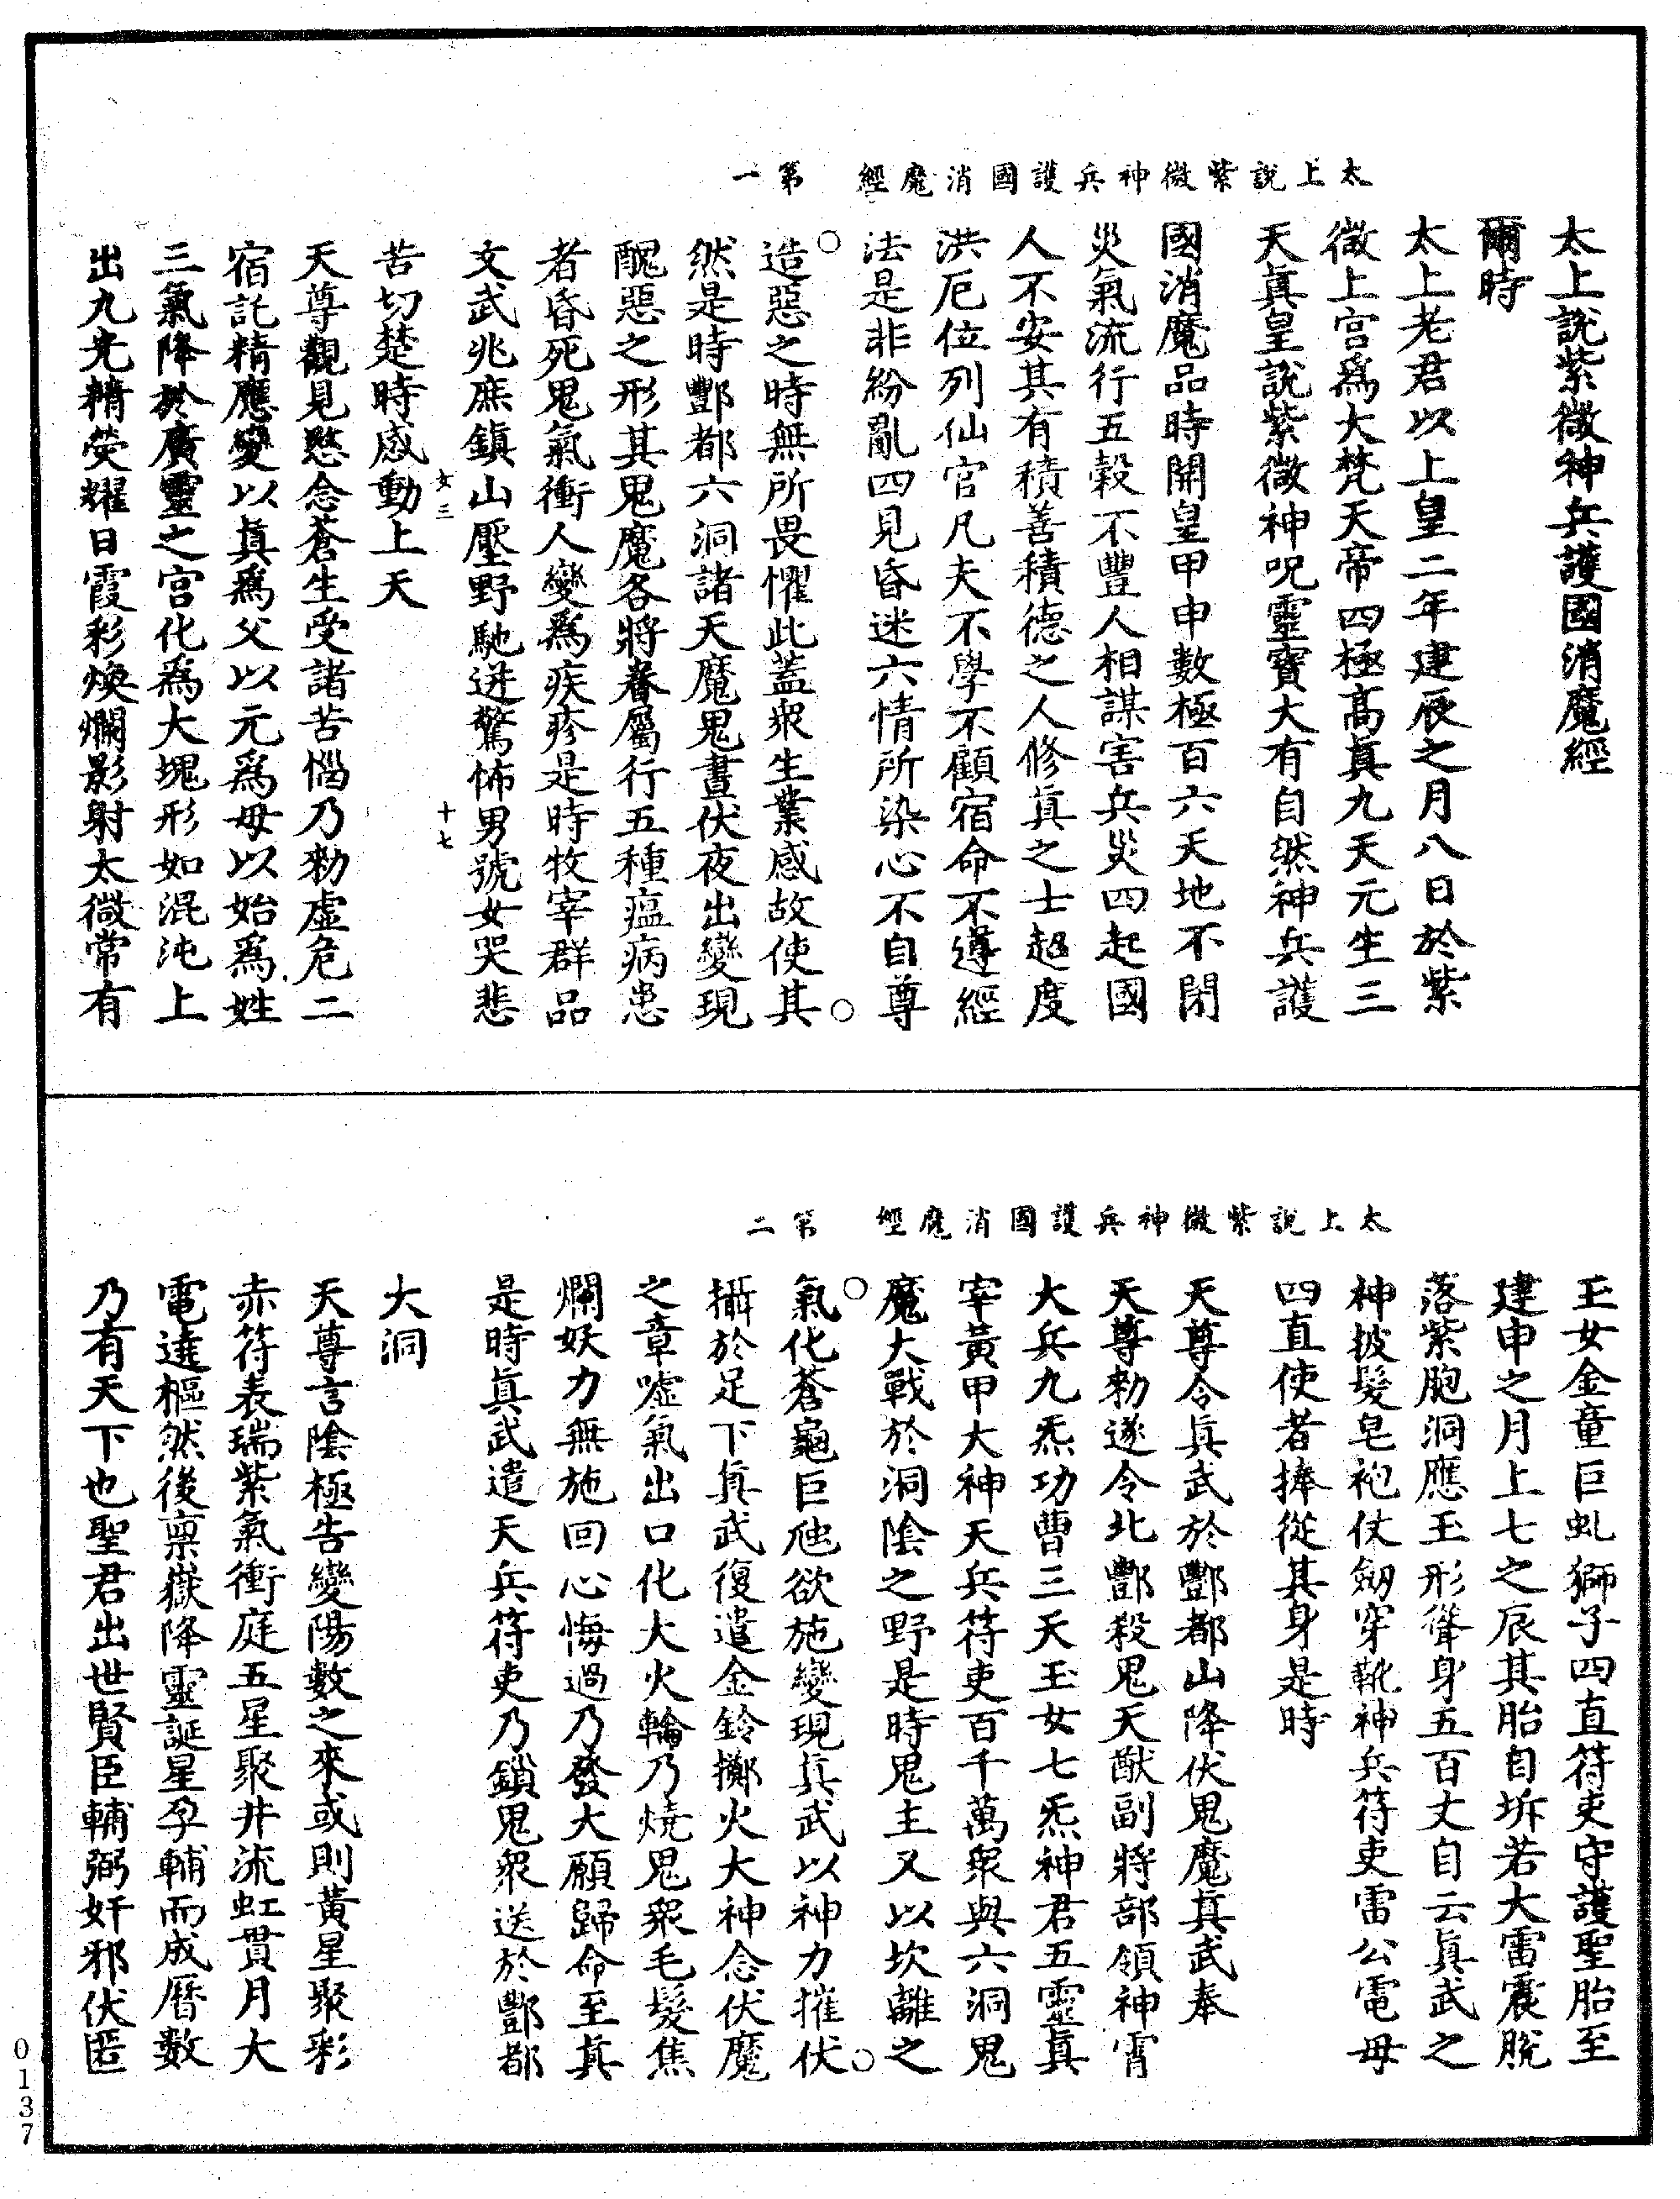 太上說紫微神兵護國消魔經　第一
太上說紫微神兵護國消魔經
爾時
太上老君以上皇二年建辰之月八日於紫
微上宮爲大梵天帝四極高真九天元生三
天真皇說紫微神呪靈寶大有自然神兵護
國消魔品時開皇甲申數極百六天地不閉
災氣流行五穀不豐人相謀害兵災四起國
人不安其有積善積德之人修真之士超度
洪厄位列仙官凡夫不學不顧宿命不遵經
法是非紛亂四見昏迷六情所染心不自尊
造惡之時無所畏懼此蓋衆生業感故使其
然是時酆都六洞諸天魔鬼晝伏夜出變現
醜惡之形其鬼魔各將眷屬行五種瘟病患
者昏死鬼氣衝人變爲疾疹是時牧宰群品
文武兆庶鎮山壓野馳迸驚怖男號女哭悲
女三　十七
苦切楚時感動上天
天尊觀見愍念蒼生受諸苦惱乃勑虛危二
宿託精應變以真爲父以元爲母以始爲姓
三氣降於廣靈之宮化爲大塊形如混沌上
出九光精熒耀日霞彩煥爛影射太微常有
太上說紫微神兵護國消魔經　第二
玉女金童巨虬獅子四直符吏守護聖胎至
建申之月上七之辰其胎自坼若大雷震脫
落紫胞洞應玉形聳身五百丈自云真武之
神披髮皂袍仗劒穿靴神兵符吏雷公電母
四直使者捧從其身是時
天尊令真武於酆都山降伏鬼魔真武奉
天尊勑遂令北酆殺鬼天猷副將部領神霄
大兵九炁功曹三天玉女七炁神君五靈真
宰黃甲大神天兵符吏百千萬衆與六洞鬼
魔大戰於洞陰之野是時鬼主又以坎離之
氣化蒼龜巨虵欲施變現真武以神力摧伏
攝於足下真武復遣金鈴擲火大神念伏魔
之章噓氣出口化大火輪乃燒鬼衆毛髮焦
爛妖力無施回心悔過乃發大願歸命至真
是時真武遣天兵符吏乃鎖鬼衆送於酆都
大洞
天尊言陰極告變陽數之來或則黃星聚彩
赤符表瑞紫氣衝庭五星聚井流虹貫月大
電遶樞然後禀嶽降靈誕星孕輔而成曆數
乃有天下也聖君出世賢臣輔弼奸邪伏匿
0137